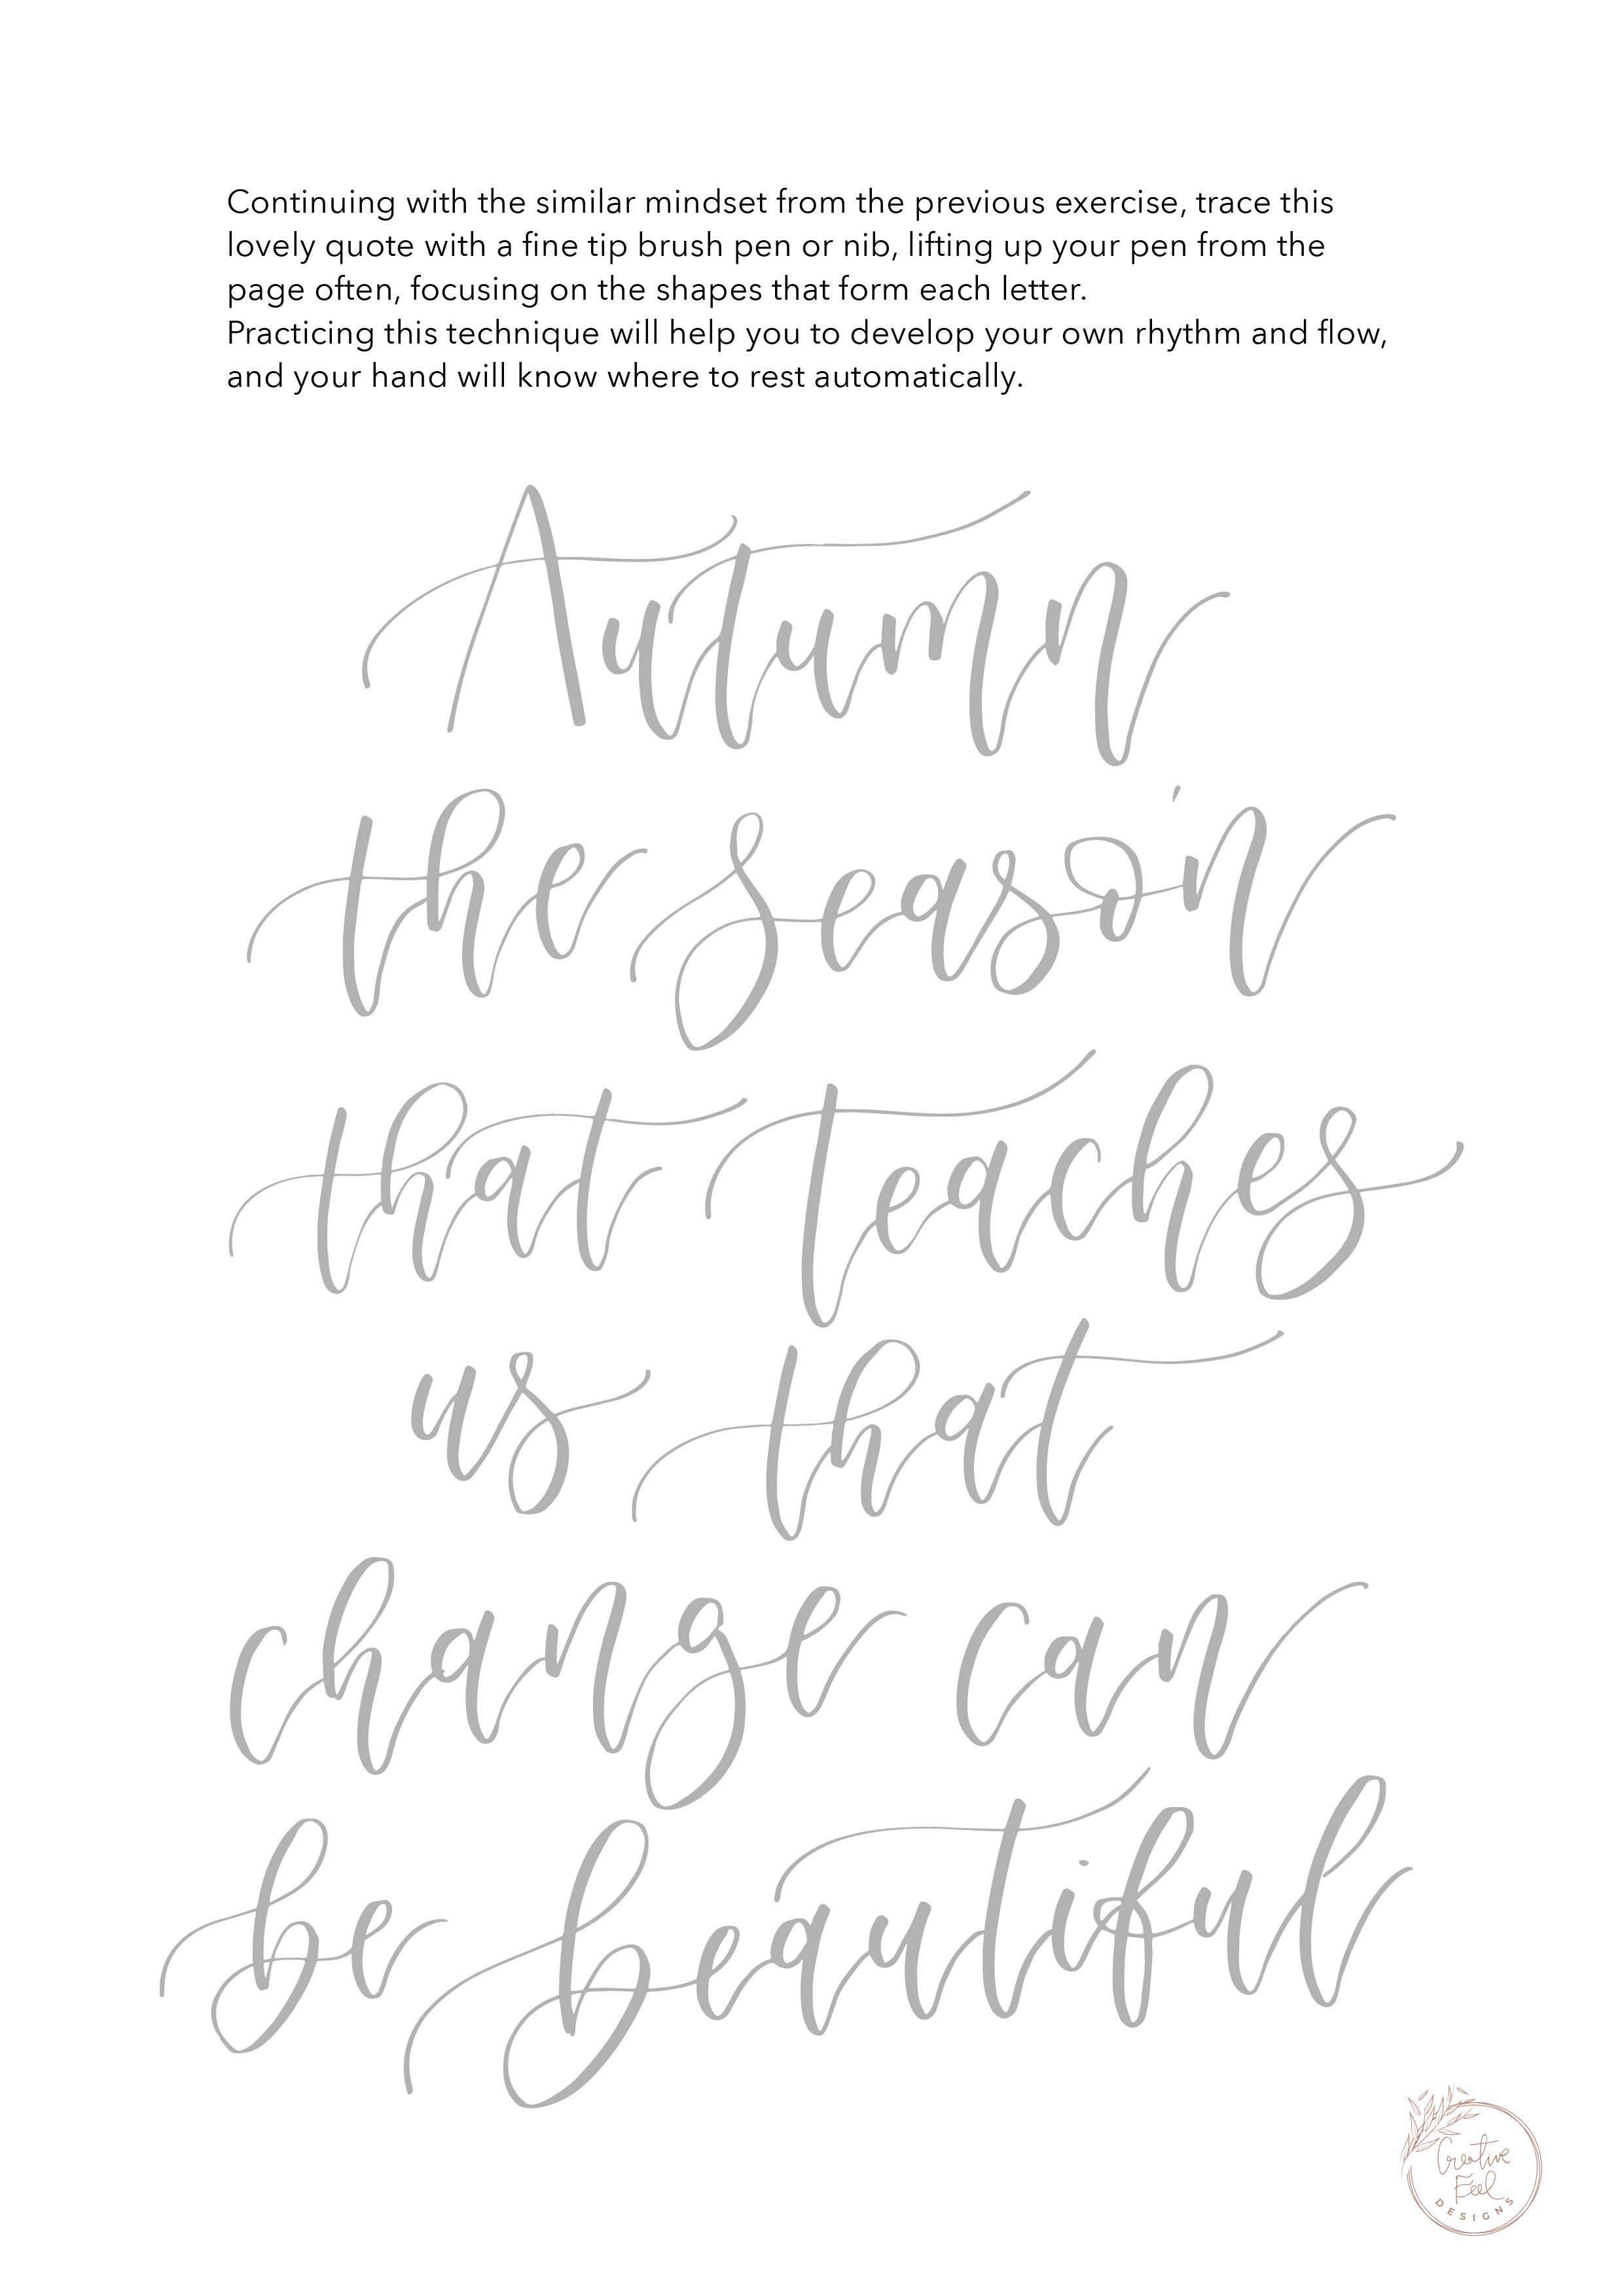 Continuing with the similar mindset from the previous exercise, trace this
lovely quote with a fine tip brush pen or nib, lifting up your pen from the
page often, focusing on the shapes that form each letter.
Practicing this technique will help you to develop your own rhythm and flow,
and your hand will know where to rest automatically.
Autumn
the season
that teaches
us that
change can
be beautiful
Creative
Feel
DESIGNS